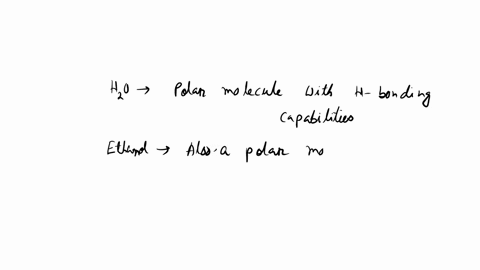 H₂O → Polar molecule with H-bonding
capabilities
Ethanol → Also a polar mo